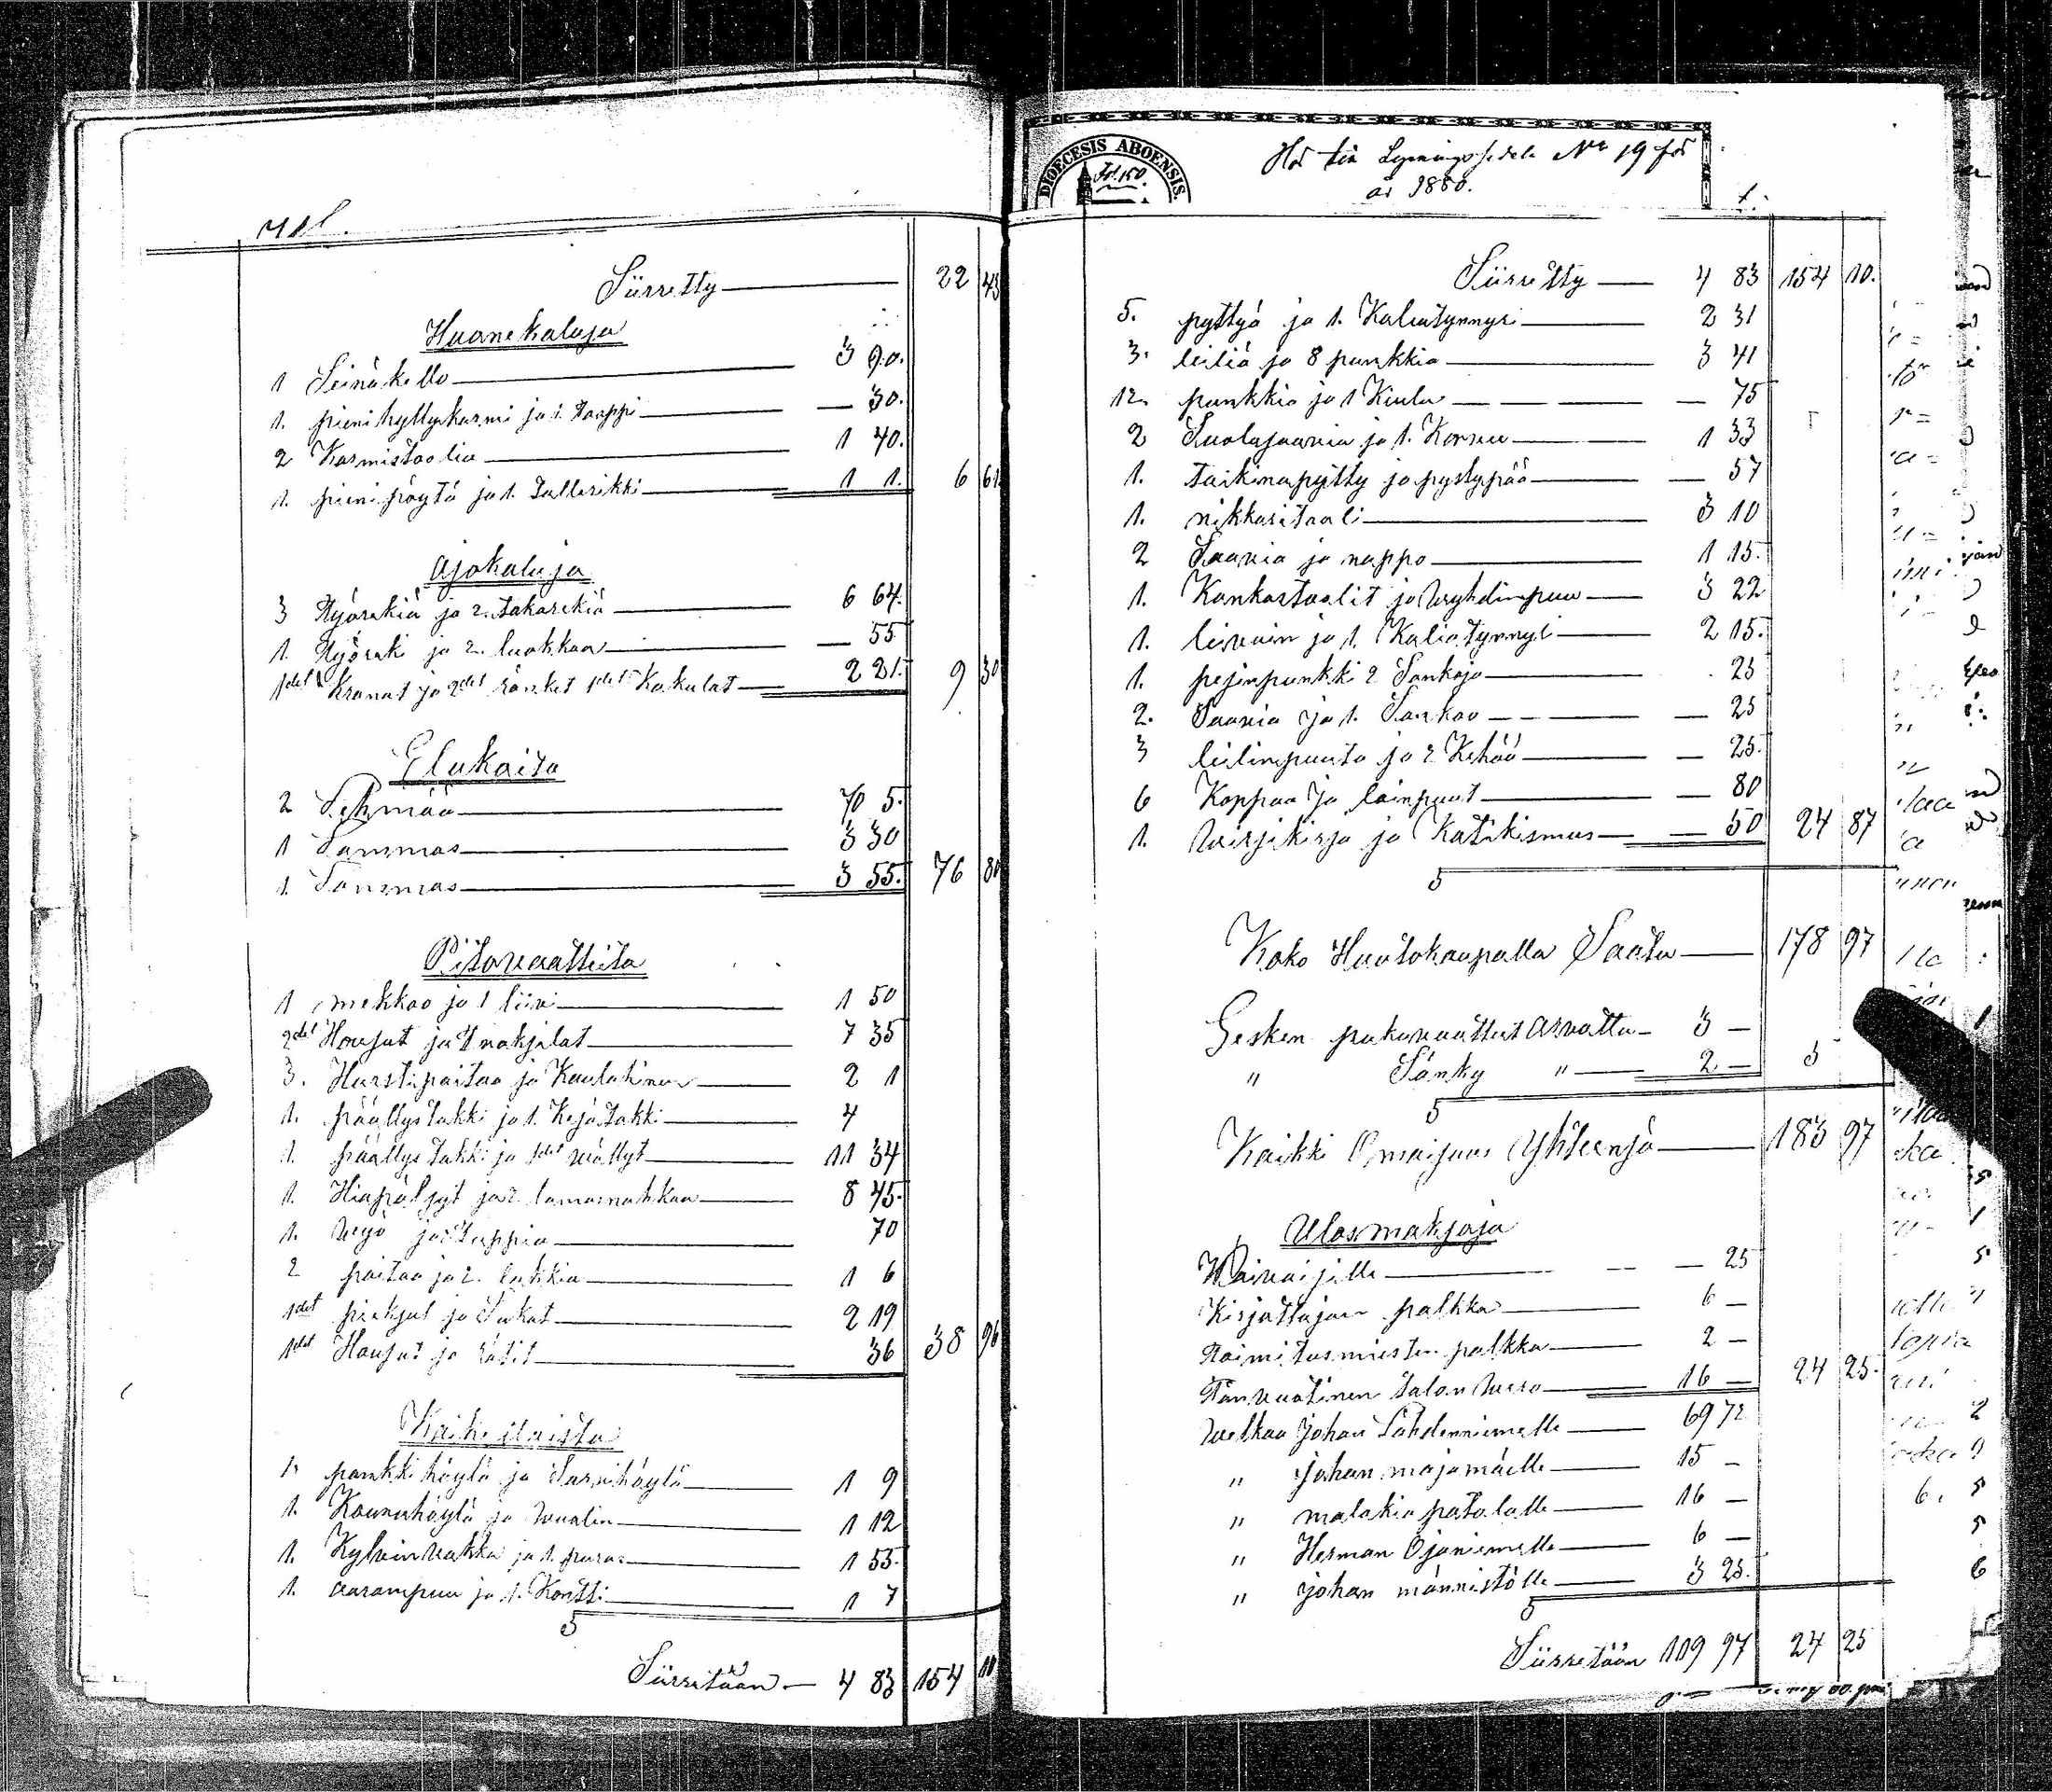 Siirretty — 22 43
Huonekaluja
1 Seinäkello — 3 90.
1. pieni hyllykarmi ja 1. Kaappi — 30.
2 Karmistoolia — 1 40.
1. pieni pöytä ja 1. Tallrikki — 1 1. 6 61
Ajokaluja
3 Työrekiä ja 2. takarekiä — 6 64.
1. Työreki ja 2. luokkaa — 55
1det Kranat ja 2det länket 1det Kakulat — 2 21. 9 30
Elukoita
2 Lehmää — 70 5.
1 Lammas — 3 30
1. Lammas — 3 55. 76 80
Pitovaatteita
1 mekkoo ja 1 liivi — 1 50
2det Housut ja — 7 35
3. Hurstipaitaa ja Kaulahinen — 2 1
1. päällystakki ja 1. Kejätakki — 4
1. päällystakki ja 1det vällyt — 11 34
1. ja 2. lamasnahkaa — 8 45.
1. Wyö ja — 70
2 paitaa ja 2. lakkia — 1 6
1det pieksut ja Sukat — 2 19
1det Housut ja — 36 38 96
Kaikellaista
1. pankkihöylä ja Sarvihöylä — 1 9
1. Kourruhöylä ja Vuolin — 1 12
1. Kylvinvakka ja 1. puras — 1 55.
1. aarampuu ja 1. Kontti — 1 7
S
Siirretään — 4 83 154 10
DIOECESIS ABOENSIS.
Fol. 150.
Hör till Lysningssedeln No 19 för
år 1880.
Siirretty — 4 83 154 10.
5. pyttyä ja 1. Kaliatynnyri — 2 31
3. leiliä ja 8 punkkia — 3 41
12. punkkia ja 1 Kiulu — — 75
2 Suolasaavia ja 1. Korvo — 1 33
1. taikinapytty ja pystypää — — 57
1. nikkaritooli — 3 10
2 Saavia ja nappo — 1 15.
1. Kankastoolit ja Wyhdinpuu — 3 22
1. leivoin ja 1. Kaliatynnyri — 2 15.
1. pesinpunkki 2 Sankoja — 25
2. Saavia ja 1. Sankoo — — 25
3 leilinpuuta ja 2 Kehää — — 25.
6 Koppaa ja loinpuut — — 80
1. Wirsikirja ja Katikismus — — 50 24 87
S
Koko Huutokaupalla Saatu — 178 97
Lesken makuuvaatteet Arvattu — 3 —
" Sänky " — 2 — 5
S
Kaikki Omaisuus Yhteensä — 183 97
Ulosmaksoja
Waivaisille — — 25
Kirjottajan palkka — 6 —
Toimitusmiesten palkka — 2 —
Tänvuotinen talon Wero — 16 — 24 25.
Welkaa Johan Lahdenniemelle — 69 72
" Johan majamäelle — 15 —
" malakia patolalle — 16 —
" Herman Ojaniemelle — 6 —
" Johan männistölle — 3 25.
S
Siirretään 109 97 24 25